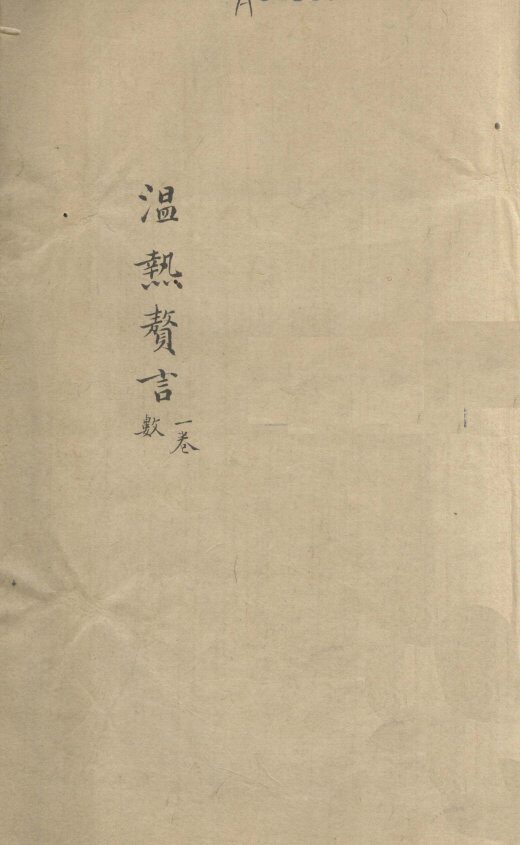 温熱贅言
一卷
數